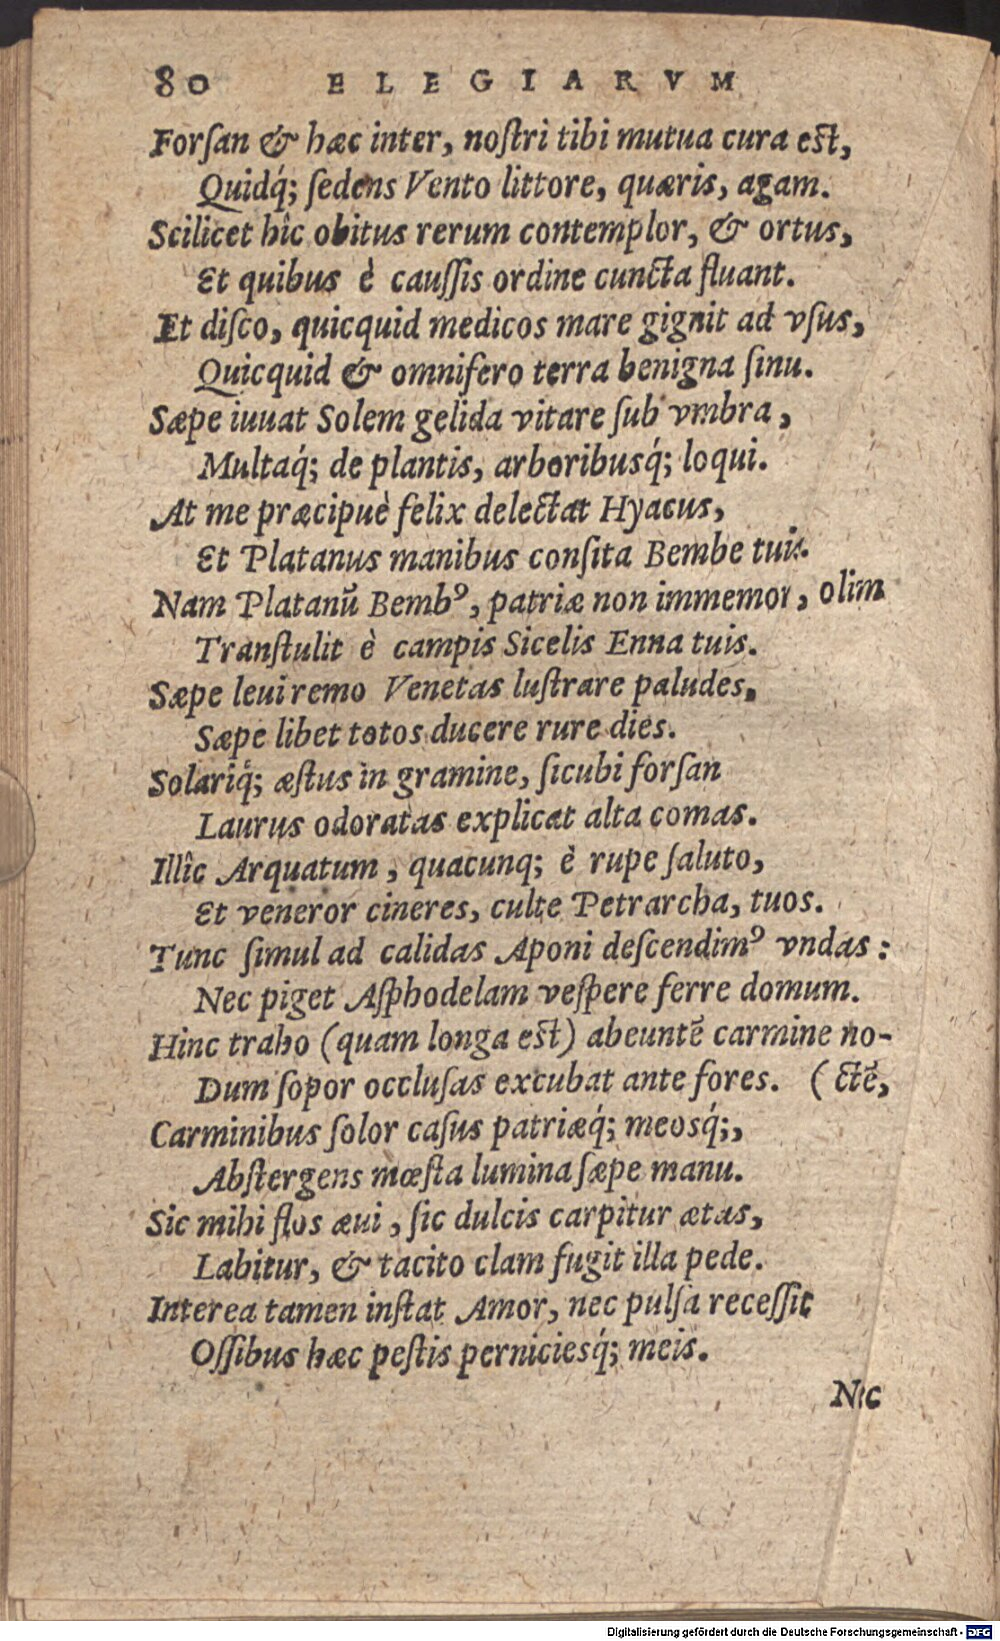 80 ELEGIARVM
Forſan & hæc inter, noſtri tibi mutua cura eſt,
Quidq́; ſedens Vento littore, quæris, agam.
Scilicet hîc obitus rerum contemplor, & ortus,
Et quibus è cauſſis ordine cuncta fluant.
Et diſco, quicquid medicos mare gignit ad vſus,
Quicquid & omnifero terra benigna ſinu.
Sæpe iuuat Solem gelida vitare ſub vmbra,
Multaq́; de plantis, arboribusq́; loqui.
At me præcipuè felix delectat Hyacus,
Et Platanus manibus conſita Bembe tuis.
Nam Platanū Bembꝰ, patriæ non immemor, olim
Tranſtulit è campis Sicelis Enna tuis.
Sæpe leui remo Venetas luſtrare paludes,
Sæpe libet totos ducere rure dies.
Solariq́; æſtus in gramine, ſicubi forſan
Laurus odoratas explicat alta comas.
Illîc Arquatum, quacunq; è rupe ſaluto,
Et veneror cineres, culte Petrarcha, tuos.
Tunc ſimul ad calidas Aponi deſcendimꝰ vndas:
Nec piget Aſphodelam veſpere ferre domum.
Hinc traho (quam longa eſt) abeuntē carmine no-
Dum ſopor occluſas excubat ante fores. (ctē,
Carminibus ſolor caſus patriæq́; meosq́;,
Abſtergens mœſta lumina ſæpe manu.
Sic mihi flos æui, ſic dulcis carpitur ætas,
Labitur, & tacito clam fugit illa pede.
Interea tamen inſtat Amor, nec pulſa receſſit
Oſſibus hæc peſtis perniciesq́; meis.
Nec
Digitalisierung gefördert durch die Deutsche Forschungsgemeinschaft - DFG